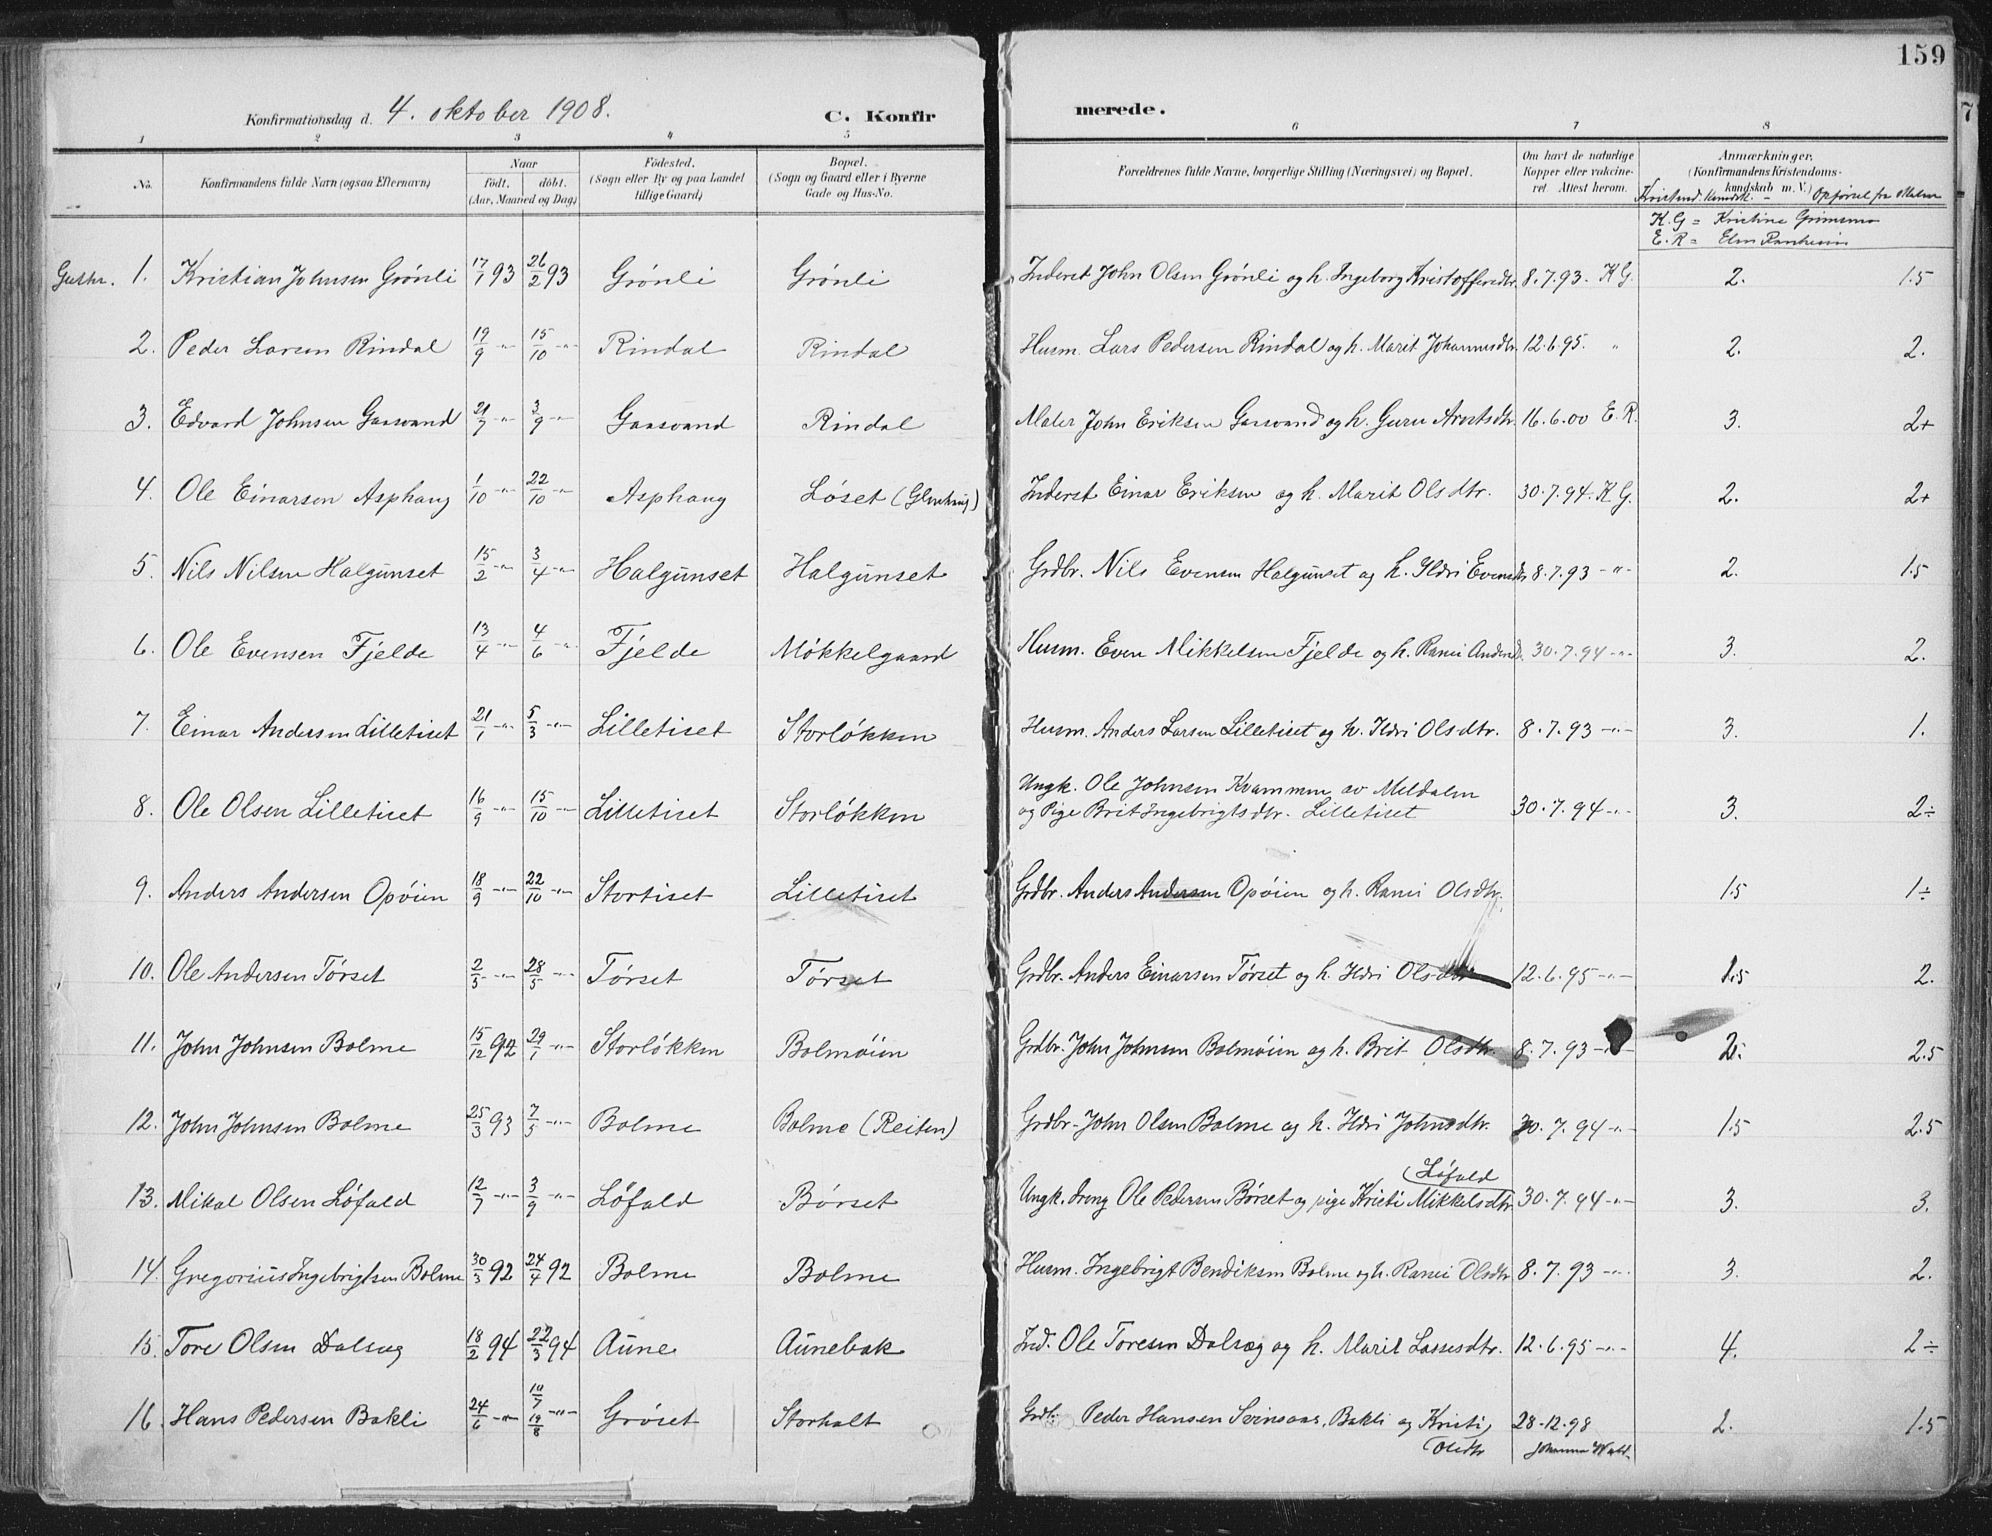 159
Konfirmationsdag d. 4. oktober 1908. C. Konfirmerede.
1 2 3 4 5 6 7 8
No. Konfirmandens fulde Navn (ogsaa Efternavn) Naar født. døbt. (Aar, Maaned og Dag) Fødested. (Sogn eller By og paa Landet tillige Gaard) Bopæl. (Sogn og Gaard eller i Byerne Gade og Hus-No. Forældrenes fulde Navne, borgerlige Stilling (Næringsvei) og Bopæl. Om havt de naturlige Kopper eller vakcineret. Attest herom. Anmærkninger. (Konfirmandens Kristendomskundskab m. V.)
K. G = Kristine Grimsmo
E. R = Elen Ranheim
1. Kristian Johnsen Grönli 17/1 93 26/2 93 Grönli Grönli Inderst John Olsen Grönli og h. Ingeborg Kristoffersdtr. 8.7.93. K G. 2. 1.5
2. Peder Larsen Rindal 19/9 -"- 15/10 -"- Rindal Rindal Husm. Lars Pedersen Rindal og h. Marit Johannesdtr. 12.6.95. " 2. 2.
3. Edvard Johnsen Gaasvand 21/7 -"- 3/9 -"- Gaasvand Rindal Maler John Eriksen Gaasvand og h. Guru 16.6.00 E. R. 3. 2+
4. Ole Einarsen Asphaug 1/10 -"- 22/10 -"- Asphaug Løset Inderst Einar Eriksen og h. Marit Olsdtr. 30.7.94. K G. 2. 2+
5. Nils Nilsen Halgunset 15/2 -"- 3/4 -"- Halgunset Halgunset Grdbr. Nils Evensen Halgunset og h. Ildri Evensdtr 8.7.93 -"- 2. 1.5
6. Ole Evensen Fjelde 13/4 -"- 4/6 -"- Fjelde Mökkelgaard Husm. Even Mikkelsen Fjelde og h. Ranei Andersdtr. 30.7.94 -"- 3. 2.
7. Einar Andersen Lilletiset 21/1 -"- 5/3 -"- Lilletiset Storlökken Husm. Anders Larsen Lilletiset og h. Ildri Olsdtr. 8.7.93 -"- 3. 1.
8. Ole Olsen Lilletiset 16/9 -"- 15/10 -"- Lilletiset Storlökken Ungk. Ole Johnsen Kvammen av Meldalen
og Pige Brit Ingebrigtsdtr. Lilletiset 30.7.94 -"- 3. 2÷
9. Anders Andersen Opöien 18/9 -"- 22/10 -"- Stortiset Lilletiset Grdbr. Anders Andersen Opöien og h. Ranei Olsdtr. 1.5 1÷
10. Ole Andersen Törset 2/5 -"- 28/5 -"- Törset Törset Grdbr. Anders Einarsen Törset og h. Ildri Olsdtr 12.6.95 -"- 1.5 2.
11. John Johnsen Bolme 15/12 92 29/1 -"- Storlökken Bolmöien Grdbr. John Johnsen Bolmöien og h. Brit Olsdtr. 8.7.93 -"- 2. 2.5
12. John Johnsen Bolme 25/3 93 7/5 -"- Bolme Bolme (Reiten) Grdbr. John Olsen Bolme og h. Ildri Johnsdtr. 30.7.94 -"- 1.5 2.5
13. Mikal Olsen Löfald 12/7 -"- 3/9 -"- Löfald Börset Ungk. dreng Ole Pedersen Börset og pige Kristi Mikkelsdtr (Löfald 30.7.94 -"- 3. 3.
14. Gregorius Ingebrigtsen Bolme 30/3 92 24/4 92 Bolme Bolme Husm. Ingebrigt Bendiksen Bolme og h. Ranei Olsdtr 8.7.93 -"- 3. 2.
15. Tore Olsen Dalsæg 18/2 94 22/3 94 Aune Aunebak Ind. Ole Toresen Dalsæg og h. Marit Lassesdtr. 12.6.95 -"- 4. 2÷
16. Hans Pedersen Bakli 24/6 -"- 10/7 19/8 -"- Gröset Storholt Grdb. Peder Hansen Svinsaas, Bakli og Kristi
Olsdtr 28.12.98 2. 1.5